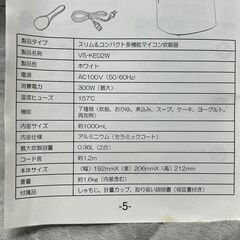 製品タイプ スリム&コンパクト多機能マイコン炊飯器
製品型名 VS-KE02W
製品色 ホワイト
電源 AC100V（50/60Hz）
消費電力 300W（最大）
温度ヒューズ 157℃
機能 7種類（炊飯、おかゆ、煮込み、スープ、ケーキ、ヨーグルト、
再加熱）
内釜サイズ 約1000mL
内釜材質 アルミニウム（セラミックコート）
最大炊飯容量 0.36L（2合）
コード長 約1.2m
本体サイズ （幅）192mmX（奥）206mmX（高）212mm
重量 約1.6kg（内釜含む）
付属品 しゃもじ、計量カップ、取り扱い説明書（保証書付き）
-5-